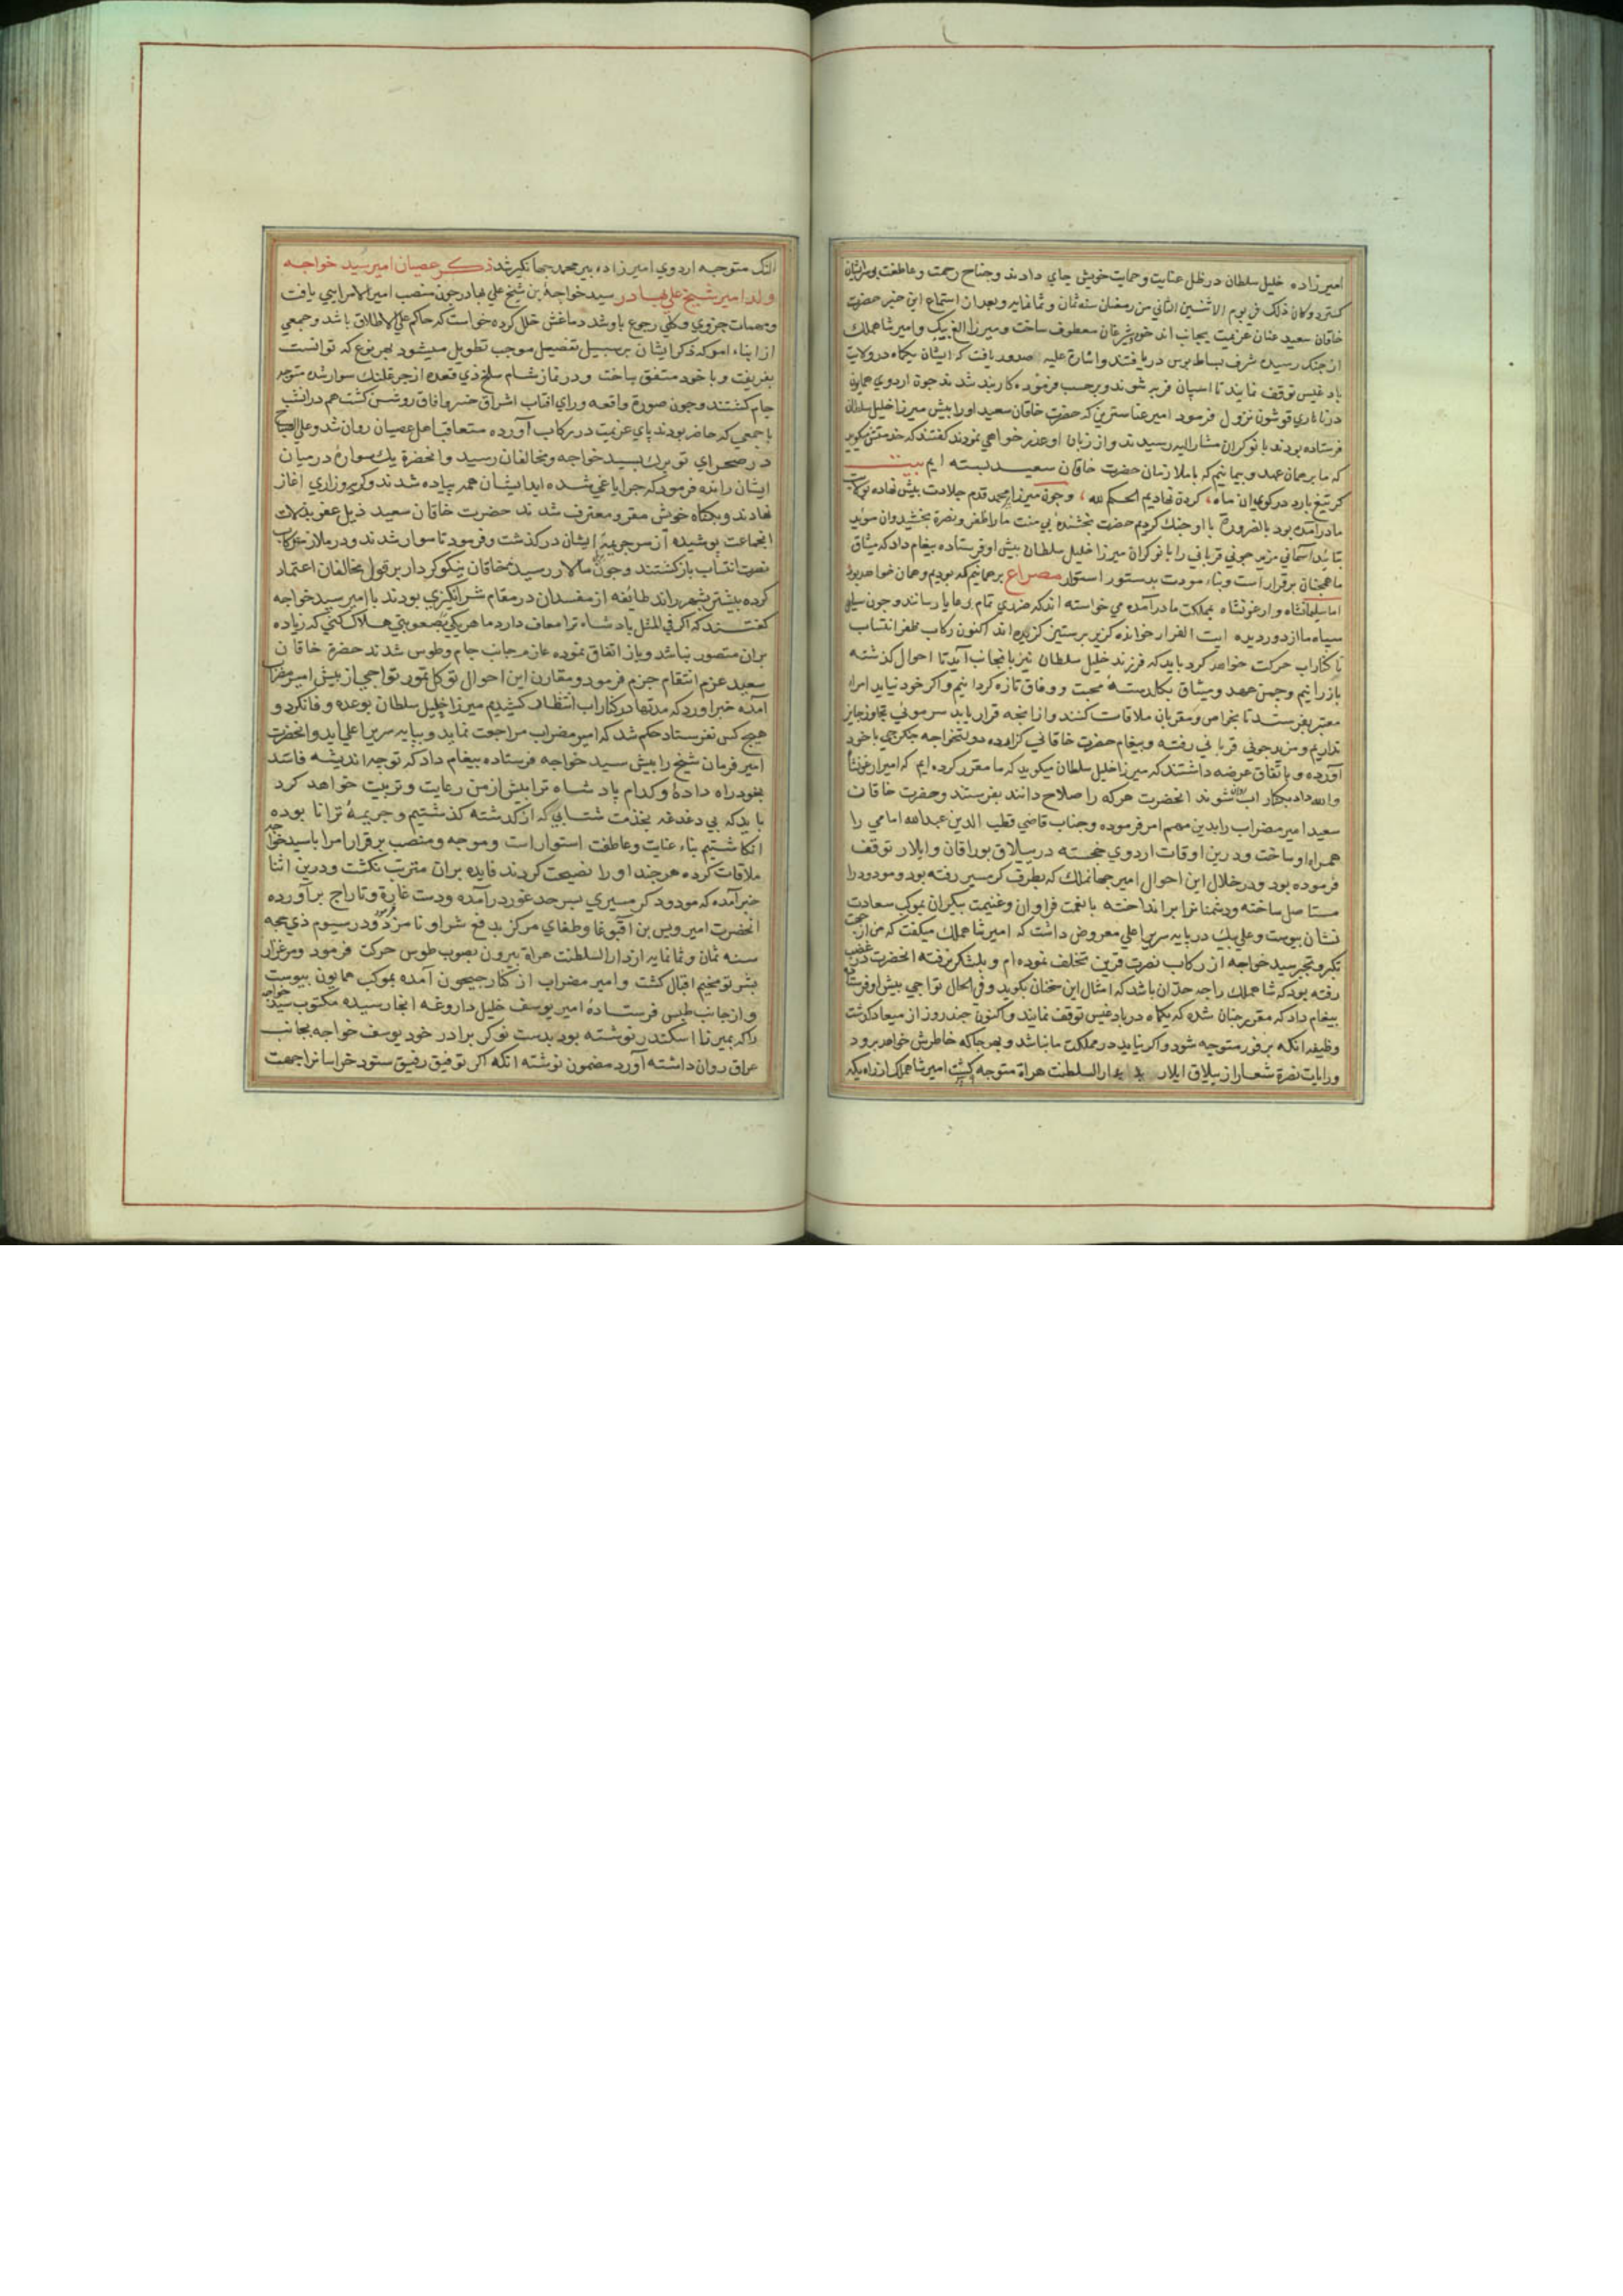 امیرزاده خلیل سلطان در ظل عنایت و حمایت خویش جای دادند و جناح رحمت و عاطفت بر سر ایشان
کسترد و کان ذلک فی یوم الاثنین الثانی من رمضان سنه ثمان و ثمانمایه و بعد از استماع این خبر حضرت
خاقان سعید عنان عزیمت بجانب اندخود و شبرغان معطوف ساخت و میرزا الغ بیک و امیر شاهملک
از جنک رسیده شرف بساط بوس دریافتند و اشارة علیه صدور یافت که ایشان یکماه در ولایت
بادغیس توقف نمایند تا اسپان فربه شوند و برحسب فرموده کاربند شدند جون اردوی همایون
نزول فرمود امیر که حضرت خاقان سعید او را بیش میرزا خلیل سلطان
فرستاده بودند با نوکران مشار الیه رسیدند و از زبان او عذر خواهی نمودند کفتند که خدمتش میکوید
که ما بر همان عهد و بیمانیم که با ملازمان حضرت خاقان سعید بسته ایم بیت
کر تیغ بارد در کوی ان ماه، کردن نهادیم الحکم لله، و جون میرزا بیر محمد قدم جلادت بیش نهاده بولایت
ما درآمده بود بالضرورة با او جنک کردیم حضرت بخشنده بی منت ما را ظفر و نصرة بخشید و ان موید
بتائید آسمانی مزید جونی قربانی را با نوکران میرزا خلیل سلطان بیش او فرستاده بیغام داد که میثاق
ما همجنان برقرار است و بناء مودت بدستور استوار مصراع بر همانیم که بودیم و همان خواهد بود
اما سلیمانشاه و ارغونشاه بمملکت ما درآمده می خواسته اند که ضرری تمام برعایا رسانند و جون سیاهی
سپاه ما از دور دیده ایت الفرار خوانده کریز بر ستیز کزیده اند اکنون رکاب ظفر انتساب
تا کنار اب حرکت خواهد کرد باید که فرزند خلیل سلطان نیز بانجانب آید تا احوال کذشته
باز رانیم و جمن عهد و میثاق بکلدستهٔ محبت و وفاق تازه کردانیم و اکر خود نیاید امراء
معتبر بفرستد تا بخواص و مقربان ملاقات کنند و از انجه قرار یابد سر موئی تجاوز جایز
نداریم و مزید جونی قربانی رفته و بیغام حضرت خاقانی کزارده دولتخواجه جکرجی با خود
آورده و باتفاق عرضه داشتند که میرزا خلیل سلطان میکوید که ما مقرر کرده ایم که امیر ارغونشاه
و الله داد بکنار اب روانه شوند انحضرت هرکه را صلاح دانند بفرستند و حضرت خاقان
سعید امیر مضراب را بدین مهم امر فرموده و جناب قاضی قطب الدین عبدالله امامی را
همراه او ساخت و درین اوقات اردوی خجسته در ییلاق بوراقان و ایلار توقف
فرموده بود و در خلال این احوال امیر جهانملک که بطرف کرمسیر رفته بود و مودود را
مستاصل ساخته و دشمنانرا برانداخته با نعمت فراوان و غنیمت بیکران بموکب سعادت
نشان بیوست و علی بیک در پایه سریر اعلی معروض داشت که امیر شاهملک میکفت که من از جهت
تکبر و تجبر سید خواجه از رکاب نصرت قرین تخلف نموده ام و بلشکر نرفته انحضرت در غضب
رفته بود که شاهملک را جه حد ان باشد که امثال این سخنان بکوید و فی الحال تواجی بیش او فرستاده
بیغام داد که مقرر جنان شده که یکماه در بادغیس توقف نمایند و اکنون جند روز از میعاد کذشت
وظیفه انکه بر فور متوجه شود و اکر نیاید در مملکت ما نباشد و بهر جا که خاطرش خواهد برود
و رایات نصرة شعار از ییلاق ایلار بدارالسلطنت هراة متوجه کشت امیر شاهملک از راه یکه
النک متوجه اردوی امیرزاده بیر محمد جهانکیر شد ذکر عصیان امیر سید خواجه
ولد امیر شیخ علی بهادر سید خواجهٔ بن شیخ علی بهادر جون منصب امیر الامرایی یافت
و مهمات جزوی و کلی رجوع باو شد دماغش خلل کرده خواست که حاکم علی الاطلاق باشد و جمعی
از ابناء امرا که ذکر ایشان بر سبیل تفصیل موجب تطویل میشود بهر نوع که توانست
بفریفت و با خود متفق ساخت و در نماز شام سلخ ذی قعده از جرغلنک سوار شده متوجه
جام کشتند و جون صورة واقعه و رای افتاب اشراق خسرو افاق روشن کشت هم در انشب
با جمعی که حاضر بودند پای عزیمت در رکاب آورده متعاقب اهل عصیان روان شد و علی الصباح
در صحرای بسید خواجه و مخالفان رسید و انحضرة یک سواره در میان
ایشان رانده فرمود که جرا یاغی شده اید ایشان همه بیاده شدند و کریه و زاری اغاز
نهادند و بکناه خویش مقر و معترف شدند حضرت خاقان سعید ذیل عفو بر زلات
انجماعت پوشیده از سر جریمهٔ ایشان درکذشت و فرمود تا سوار شدند و در ملازمت رکاب
نصرت انتساب بازکشتند و جون بمالار رسیدند خاقان نیکو کردار بر قول مخالفان اعتماد
کرده بیشتر بشهر راند طائفه از مفسدان در مقام شرانکیزی بودند با امیر سید خواجه
کفتند که اکر فی المثل پادشاه ترا معاف دارد ما هر یکی بصعوبتی هلاک کنی که زیاده
بران متصور نباشد و باز اتفاق نموده عازم جانب جام و طوس شدند حضرة خاقان
سعید عزم انتقام جزم فرمود و مقارن این احوال توکل تمور تواجی از بیش امیر مضراب
آمده خبر اورد که مدتها در کنار اب انتظار کشیدیم میرزا خلیل سلطان بوعده وفا نکرد و
هیچ کس نفرستاد حکم شد که امیر مضراب مراجعت نماید و ببایه سریر اعلی اید و انحضرت
امیر فرمان شیخ را بیش سید خواجه فرستاده بیغام داد که توجه اندیشه فاسد
بخود راه دادهٔ و کدام پادشاه ترا بیش از من رعایت و تربیت خواهد کرد
باید که بی دغدغه بخدمت شتابی که از کذشته کذشتیم و جریمهٔ ترا نا بوده
انکاشتیم بناء عنایت و عاطفت استوار است و موجه و منصب برقرار امرا با سید خواجه
ملاقات کرده هر جند او را نصیحت کردند فایده بران مترتب نکشت و درین اثنا
خبر آمده که مودود کرمسیری بسرحد غور درآمده و دست غارة و تاراج برآورده
انحضرت امیر ویس بن اقبوغا و طغای مرکز بدفع شر او نامزد فرمود و در سیوم ذی حجه
سنه ثمان و ثمانمایه از دارالسلطنت هراة بیرون بصوب طوس حرکت فرمود و مرغزار
بشرتو مخیم اقبال کشت و امیر مضراب از کنار جیحون آمده بموکب همایون بیوست
و از جانب طبس فرستادهٔ امیر یوسف خلیل داروغه انجا رسیده مکتوب سید خواجه
را که بمیرزا اسکندر نوشته بود بدست نوکر برادر خود یوسف خواجه بجانب
عراق روان داشته آورد مضمون نوشته انکه اکر توفیق رفیق شود خراسانرا جهت